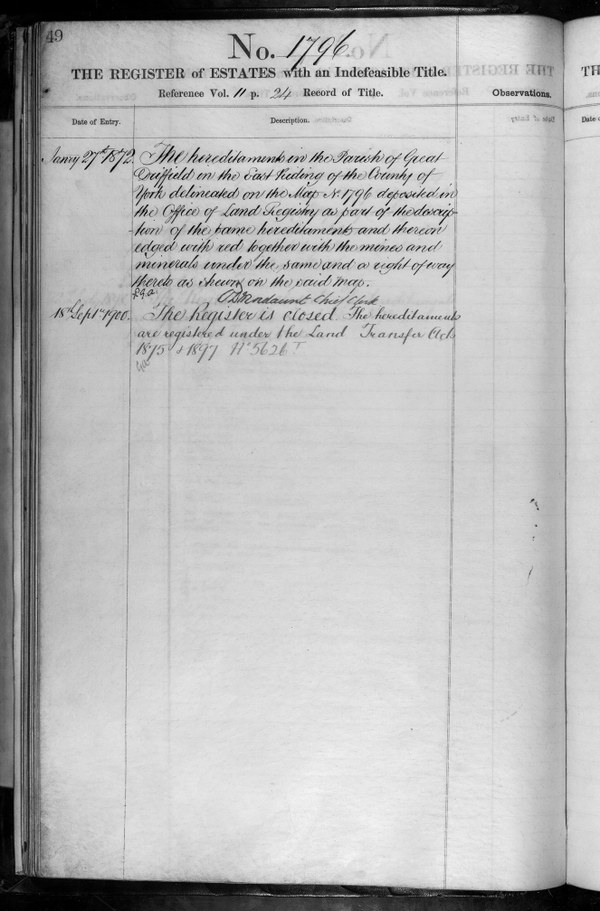 49
No. 1796
THE REGISTER of ESTATES with an Indefeasible Title.
Reference Vol. 11 p. 24 Record of Title.
Observations.
Date of Entry.
Description.
Janry 27th 1872.
The hereditaments in the Parish of Great
Driffield in the East Riding of the County of
York delineated on the Map No. 1796 deposited in
the Office of Land Registry as part of the descrip-
-tion of the same hereditaments and thereon
edged with red together with the mines and
minerals under the same and a right of way
thereto as shewn on the said map.
Chief Clerk
18th Septr 1900.
The Register is closed. The hereditaments
are registered under the Land Transfer Acts
1875 & 1897 No 5626
TH
Date o